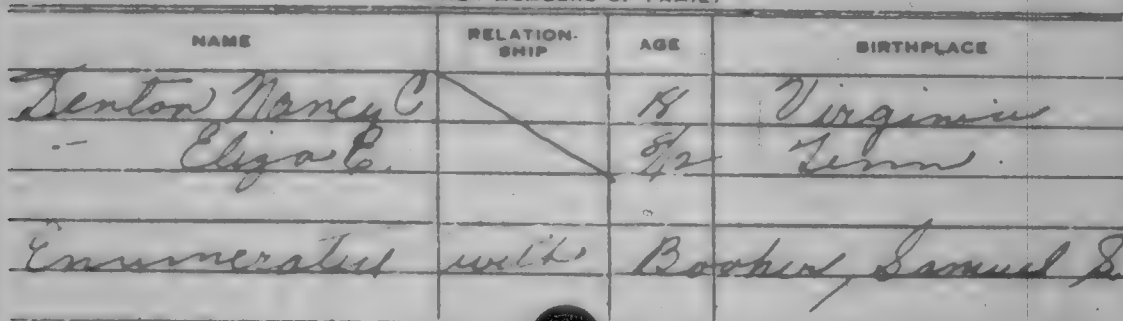 OF MEMBERS OF FAMILY
NAME RELATION-SHIP AGE BIRTHPLACE
Denton Nancy C 18 Virginia
- Eliza E. 8/12 Tenn.
Enumerated with Booher, Samuel S.